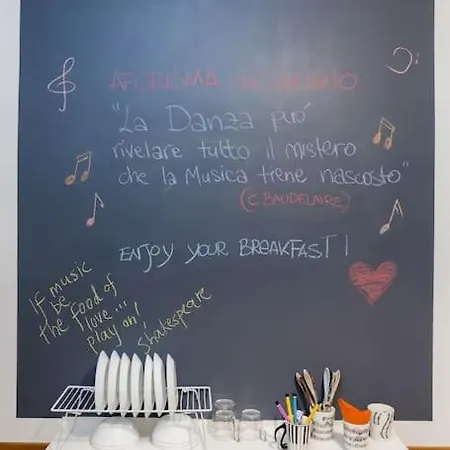 AFORISMA DEL GIORNO:
"La Danza può
rivelare tutto il mistero
che la Musica tiene nascosto"
(C. BAUDELAIRE)
ENJOY YOUR BREAKFAST!
If music
be
the food of
love...
play on!
Shakespeare